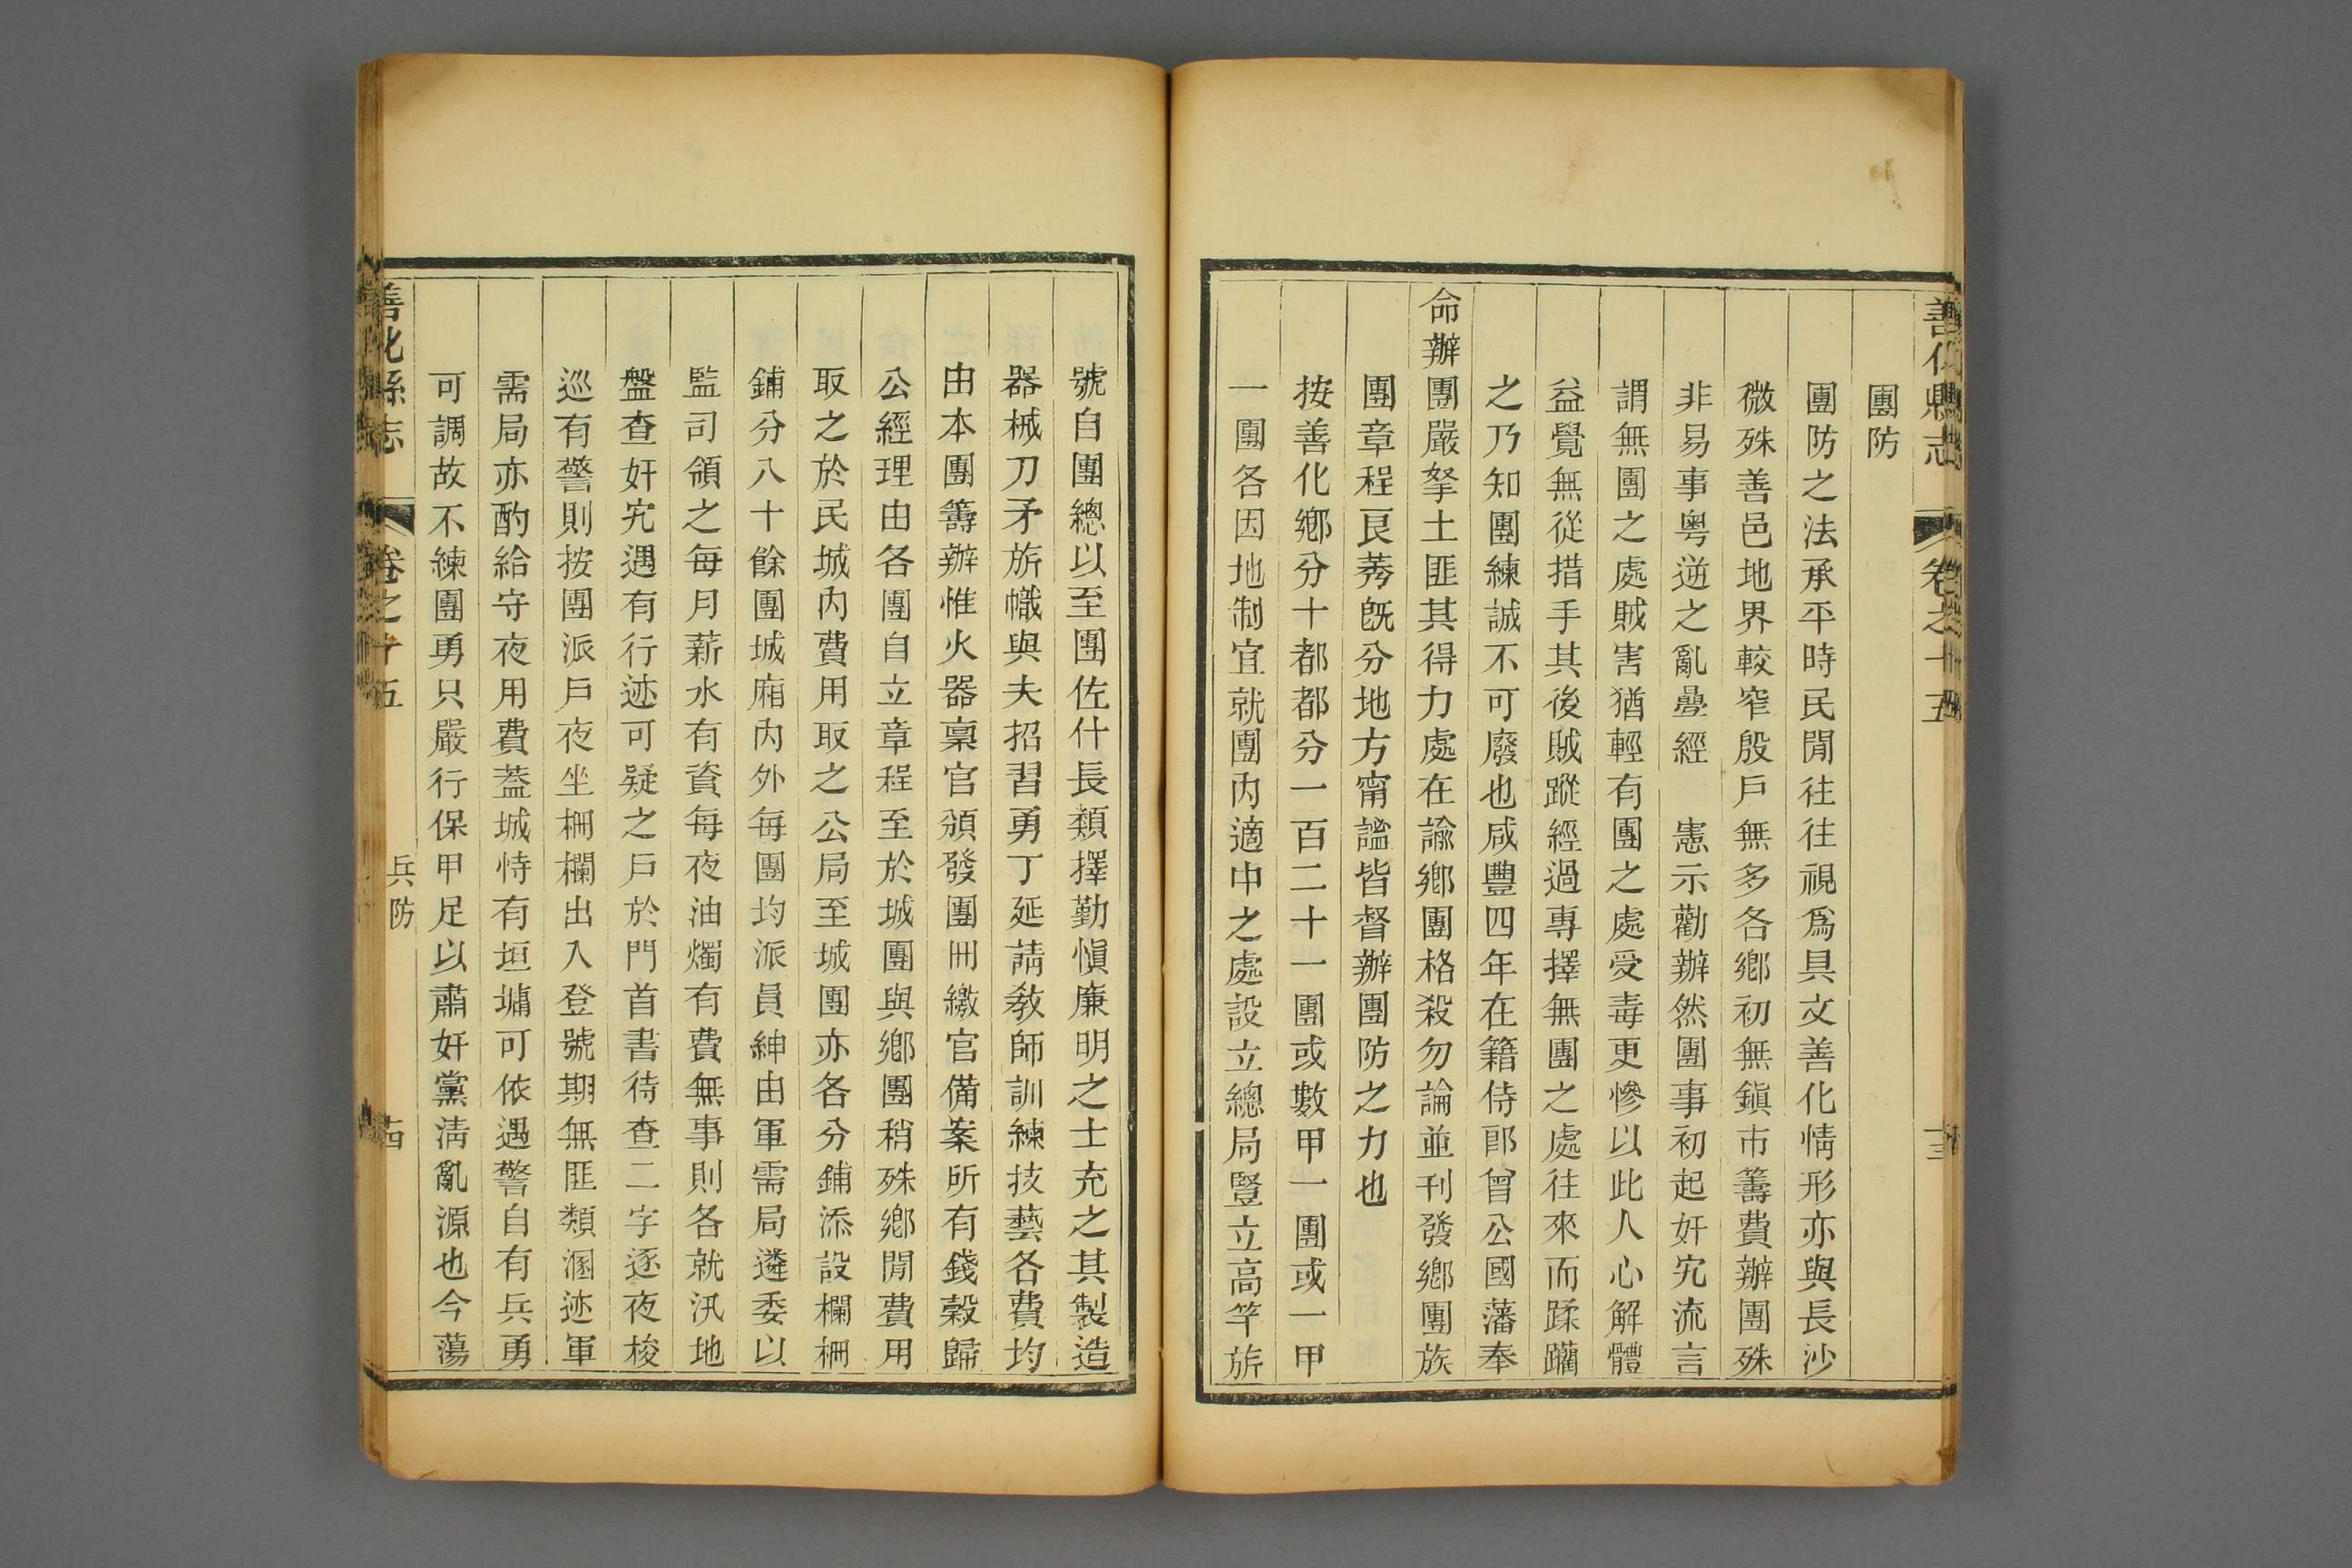 善化縣志 卷之十五 十三
團防
團防之法承平時民閒往往視爲具文善化情形亦與長沙
微殊善邑地界較窄殷戶無多各鄉初無鎭市籌費辦團殊
非易事粤逆之亂曡經 憲示勸辦然團事初起奸宄流言
謂無團之處賊害猶輕有團之處受毒更慘以此人心解體
益覺無從措手其後賊蹤經過專擇無團之處往來而蹂躪
之乃知團練誠不可廢也咸豐四年在籍侍郎曾公國藩奉
命辦團嚴拏土匪其得力處在諭鄉團格殺勿論並刊發鄉團族
團章程良莠旣分地方甯謐皆督辦團防之力也
按善化鄉分十都都分一百二十一團或數甲一團或一甲
一團各因地制宜就團內適中之處設立總局豎立高竿旂
號自團總以至團佐什長類擇勤愼廉明之士充之其製造
器械刀矛旂幟與夫招習勇丁延請敎師訓練技藝各費均
由本團籌辦惟火器稟官頒發團冊繳官備案所有錢穀歸
公經理由各團自立章程至於城團與鄉團稍殊鄉閒費用
取之於民城內費用取之公局至城團亦各分鋪添設欄柵
鋪分八十餘團城廂內外每團均派員紳由軍需局遴委以
監司領之每月薪水有資每夜油燭有費無事則各就汛地
盤查奸宄遇有行迹可疑之戶於門首書待查二字逐夜梭
巡有警則按團派戶夜坐柵欄出入登號期無匪類溷迹軍
需局亦酌給守夜用費葢城恃有垣墉可依遇警自有兵勇
可調故不練團勇只嚴行保甲足以肅奸黨淸亂源也今蕩
善化縣志 卷之十五 兵防 十四